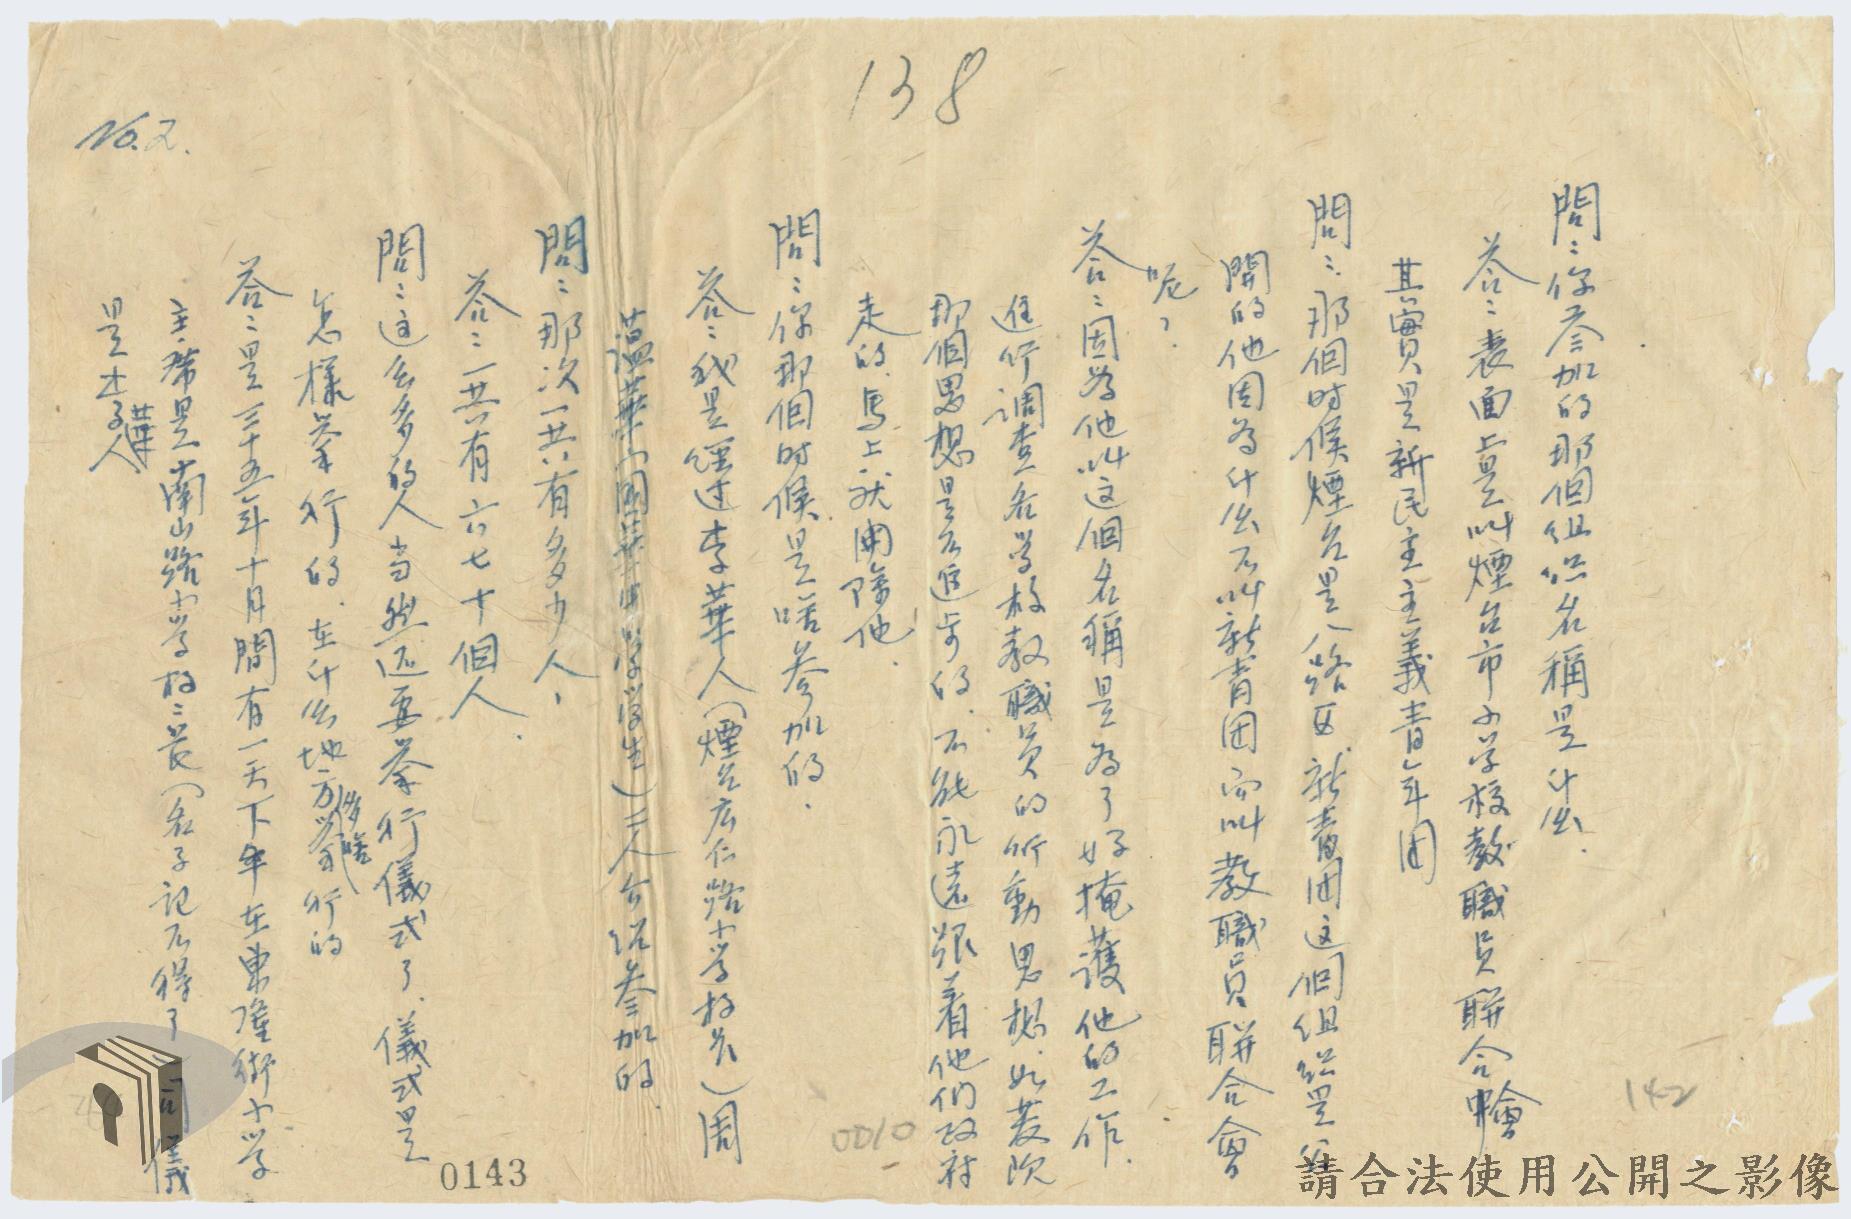 138
No.2.
問：你参加的那個组织名稱是什麽．
答：表面上是叫煙台市小学校教職员联合會
其實是新民主主義青年团
問：那個時候煙台是八路區．新青团这個组织是公
開的他因為什么不叫新青团而叫教職員联合會
呢？
答：因為他叫这個名稱是為了好掩護他的工作．
進行調查各学校教職员的行動思想．如發現
那個思想是不進步的．不能永遠跟着他們政府
走的．馬上就開除他．
問：你那個時候是啥参加的．
答：我是經过李華人（煙台広仁路小学校长）周
蘊華（國華中学学生）二人介绍参加的．
問：那次一共有多少人，
答：一共有六七十個人．
問：这么多的人当然还要举行儀式了．儀式是
怎樣举行的．在什么地方多啥举行的
答：是三十五年十月間有一天下午在東隆街小学
主席是南山路小学校长（名子記不得了）司儀
是李華人
0143
0010
142
請合法使用公開之影像